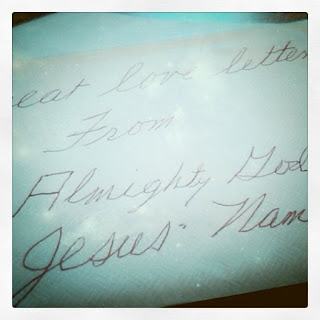 eat love letter
From
Almighty God
Jesus' Nam